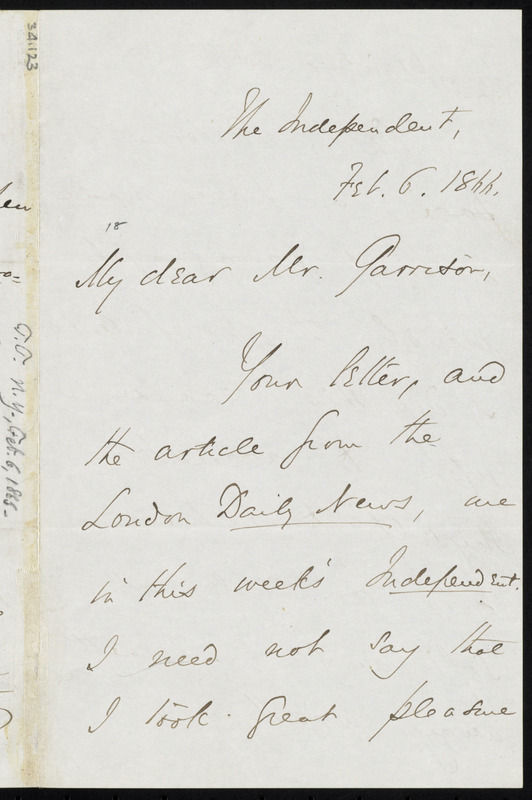 34:123
The Independent,
Feb. 6. 1866.
18
My dear Mr. Garrison,
Your letter, and
the article from the
London Daily News, are
in this week's Independent.
I need not say that
I took great pleasure
N.Y., Feb. 6, 1866.